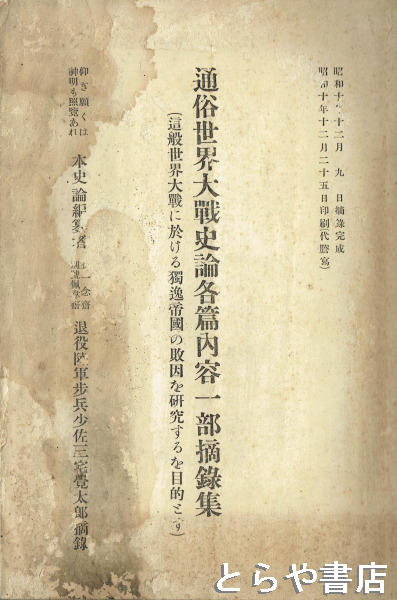 昭和十年十二月九日摘錄完成
昭和十年十二月二十五日印刷(代謄寫)
通俗世界大戰史論各篇內容一部摘錄集
(這般世界大戰に於ける獨逸帝國の敗因を研究するを目的とす)
仰ぎ願くは
神明も照覽あれ
本史論編纂者
一念齋
退役陸軍步兵少佐三宅覺太郎摘錄
とらや書店